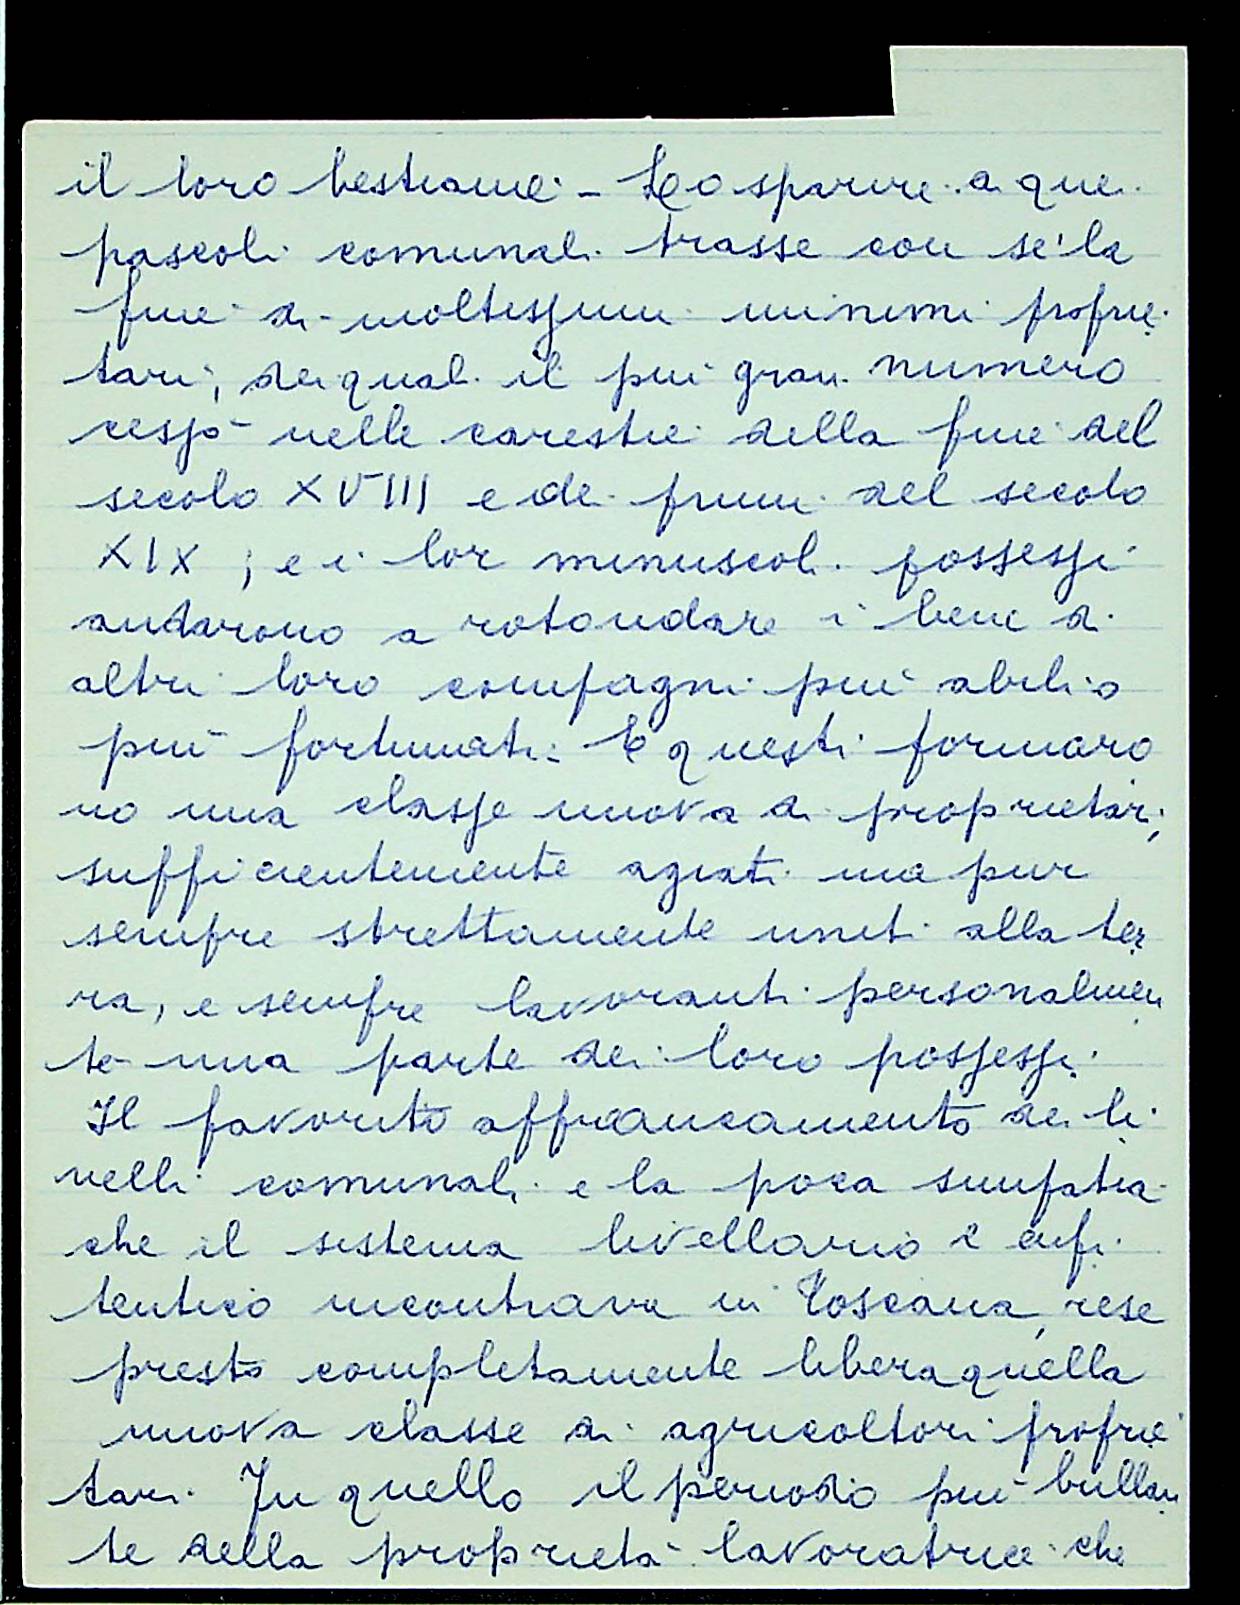 il loro bestiame - Lo sparire di quei
pascoli comunali trasse con sé la
fine di moltissimi minimi proprie
tari, dei quali il più gran numero
cessò nelle carestie della fine del
secolo XVIII e dei primi del secolo
XIX ; e i lor minuscoli possessi
andarono a rotondare i beni di
altri loro compagni più abili o
più fortunati. E questi formaro
no una classe nuova di proprietari,
sufficientemente agiati ma pur
sempre strettamente uniti alla ter
ra, e sempre lavoranti personalmen
te una parte dei loro possessi.
Il favorito affrancamento dei li
velli comunali e la poca simpatia
che il sistema livellario e enfi
teutico incontrava in Toscana, rese
presto completamente libera quella
nuova classe di agricoltori proprie
tari. Fu quello il periodo più brillan
te della proprietà lavoratrice che